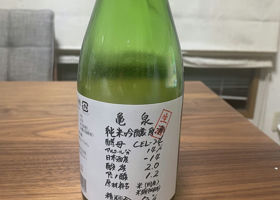 亀泉
純米吟醸 原酒
生
酵母 CEL-24
アルコール分 14%
日本酒度 -14
酸度 2.0
アミノ酸 1.2
原材料名 米(国産)